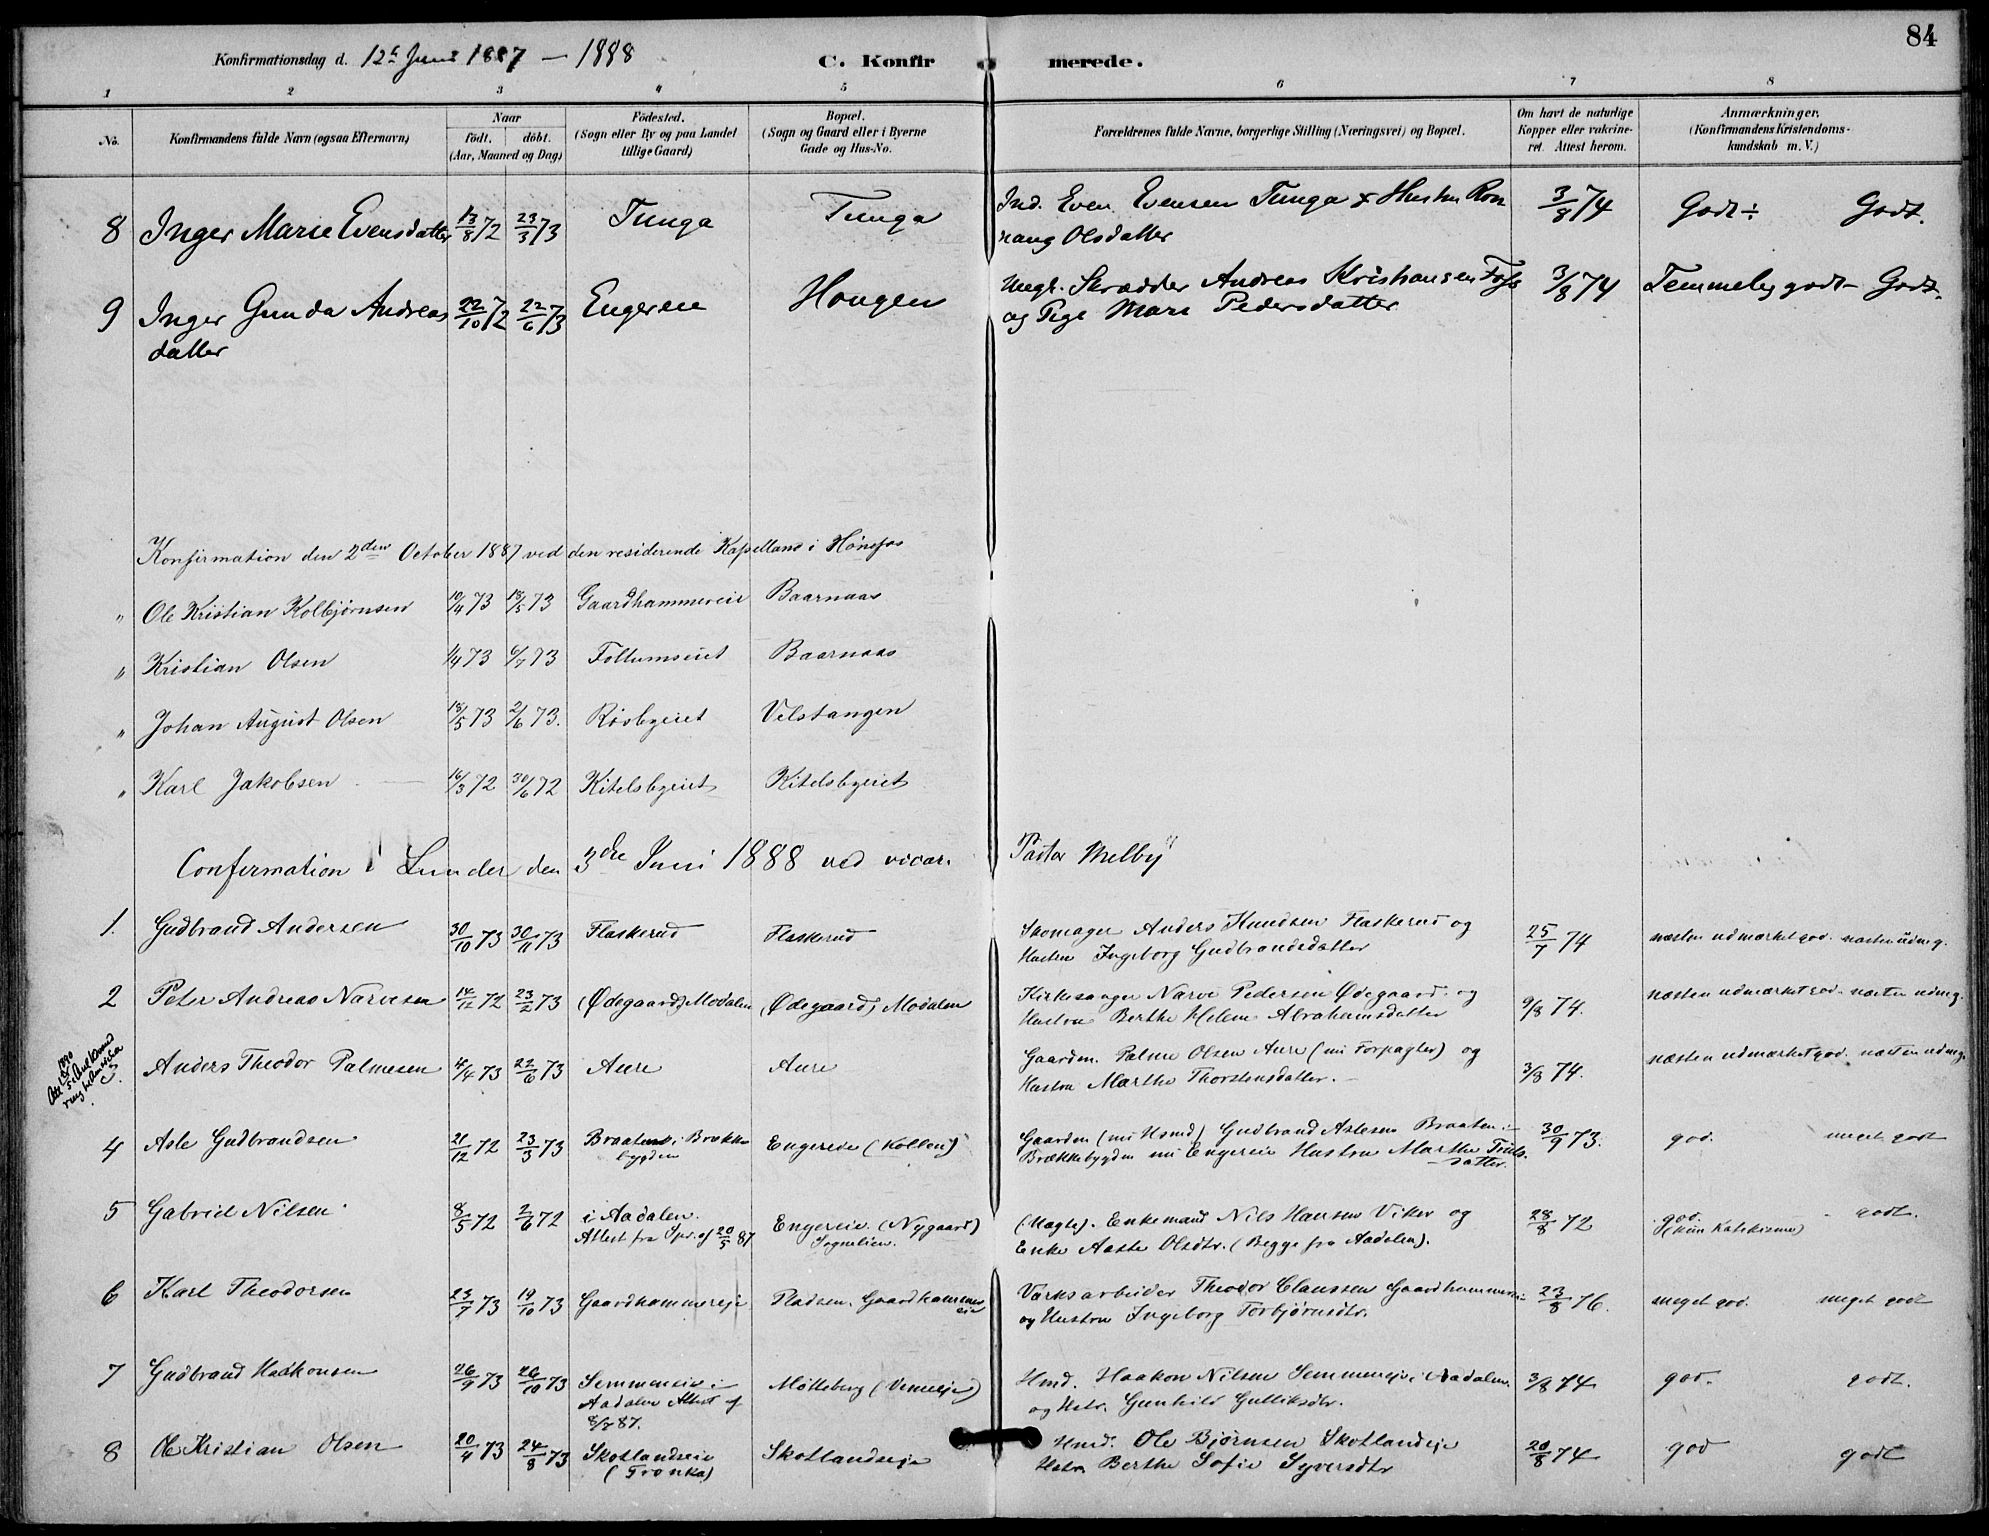 84
Konfirmationsdag d. 12te Juni 1887 — 1888
C. Konfirmerede.
1 2 3 4 5 6 7 8
No.
Konfirmandens fulde Navn (ogsaa Efternavn)
Naar
født. døbt.
(Aar, Maaned og Dag)
Fødested.
(Sogn eller By og paa Landet
tillige Gaard)
Bopæl.
(Sogn og Gaard eller i Byerne
Gade og Hus-No.
Forældrenes fulde Navne, borgerlige Stilling (Næringsvei) og Bopæl.
Om havt de naturlige
Kopper eller vakcine-
ret. Attest herom.
Anmærkninger.
(Konfirmandens Kristendoms-
kundskab m. V.)
8 Inger Marie Evensdatter 13/8 72 23/3 73 Tunga Tunga Ind. Even Evensen Tunga & Hustru Ron 3/8 74 Godt ÷ Godt.
nang Olsdatter
9 Inger Gunda Andreas 22/10 72 22/6 73 Engereie Hougen Ungk. Skrædder Andreas Kristiansen Foss 3/8 74 Temmelig godt - Godt.
datter
og Pige Mari Pedersdatter
Konfirmation den 2den October 1887 ved den residerende Kapellans i Hønefos
" Ole Kristian Kolbjørnsen 10/4 73 18/5 73 Gaardhammereie Baarnaas
" Kristian Olsen 1/4 73 6/7 73 Follumseiet Baarnaas
" Johan August Olsen 18/5 73 2/6 73. Risbyeiet Velstangen
" Karl Jakobsen 16/3 72 30/6 72 Kitelsbyeiet Kitelsbyeiet
Confirmation i Lunder den 3die Juni 1888 ved vicar. Pastor Melbÿ
1. Gudbrand Andersen 30/10 73 30/11 73 Flaskerud Flaskerud Skomager Anders Knudsen Flaskerud og 25/7 74 næsten udmærket god. næsten udmg.
Hustru Ingeborg Gudbrandsdatter
2 Peter Andreas Narvesen 14/12 72 23/2 73 (Ødegaard) Modalen (Ødegaard) Modalen Kirkesanger Narve Pedersen Ødegaard og 9/8 74. næsten udmærket god. næsten udmg.
Hustru Berthe Helene Abrahamsdatter
3. Anders Theodor Palmesen 4/4 73 22/6 73 Aure Aure Gaardm. Palme Olsen Aure (nu Forpagter) og 3/8 74. næsten udmærket god. næsten udmg.
Hustru Marthe Thorstensdatter. -
1890
4 Asle Gudbrandsen 21/12 72 23/3 73 Braaten i Brække Engereie (Kollen) Gaardm (nu Hsmd) Gudbrand Aslesen Braaten i 30/9 73. god. meget godt
bygden
Brækkebygden nu Engereie Hustru Marthe Truls-
datter.
5 Gabriel Nilsen 8/5 72 2/6 72 i Aadalen. Engereie. (Nygaard) (Uægte). Enkemand Nils Hansen Viker og 28/8 72 god. godt.
Attest fra Spr. af 20/5 87 Sognelien. Enke Aaste Olsdtr. (Begge fra Aadalen). (kun Katekisme)
6 Karl Theodorsen 23/7 73 19/10 73 Gaardhammereje Pladsen. Gaardhammer Værksarbeider Theodor Claussen Gaardhammerei 23/8 76. meget god. meget godt
eie
og Hustru Ingeborg Torbjørnsdtr.
7 Gudbrand Haakonsen 26/9 73 26/10 73 Semmeneie i Møtteberg (Vemeeje) Hmd. Haakon Nilsen Semmeneje i Aadalen. 3/8 74 god. godt.
Aadalen Attest af og Hstr. Gunhild Gulliksdtr.
8/7 87.
8 Ole Kristian Olsen 20/4 73 24/8 73 Skotlandseie Skotlandseje Hmd. Ole Bjørnsen Skotlandeje 20/8 74 god godt
(Fronka) Hstr. Berthe Sofie Syversdtr